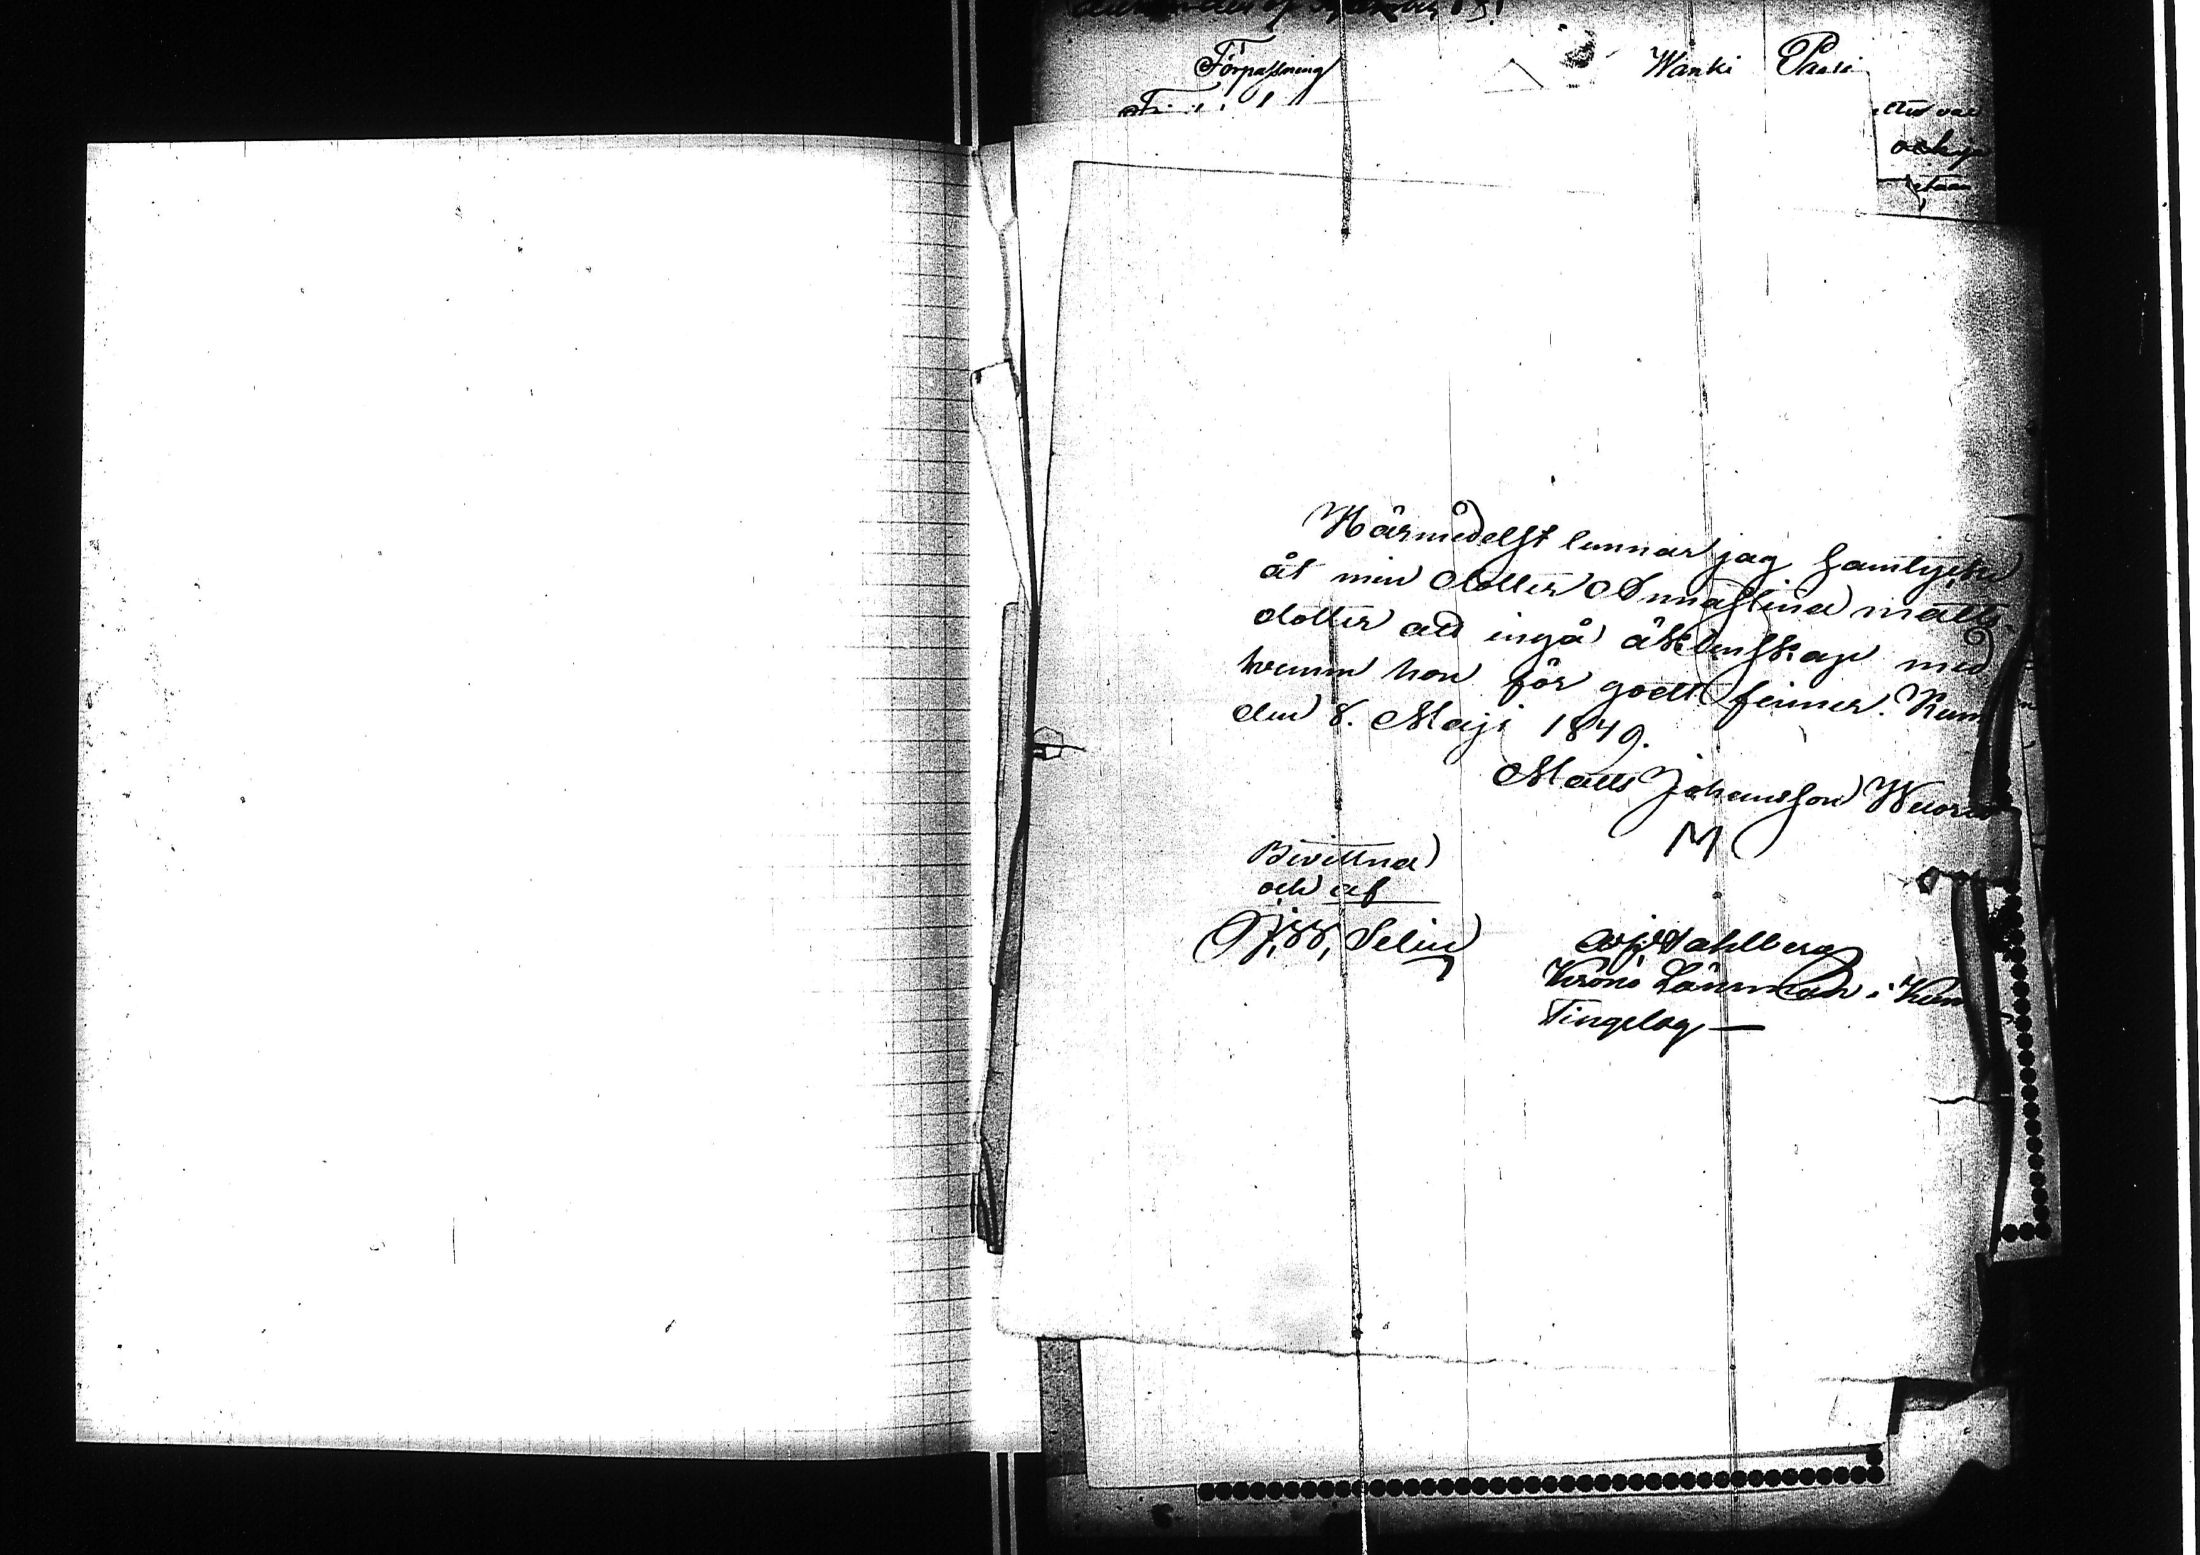 Förpassning
Wanki
Härmedelst lemnar jag samtycke
åt min dotter Annastina matts-
dotter att ingå äktenskap med
hvemm hon för godt finner. Kum
den 8. Maji 1849.
Matts Johansson Wuori
M
Bevittna
och af
Selin
Wahlberg
Krono Länsman i Kum
Tingelag